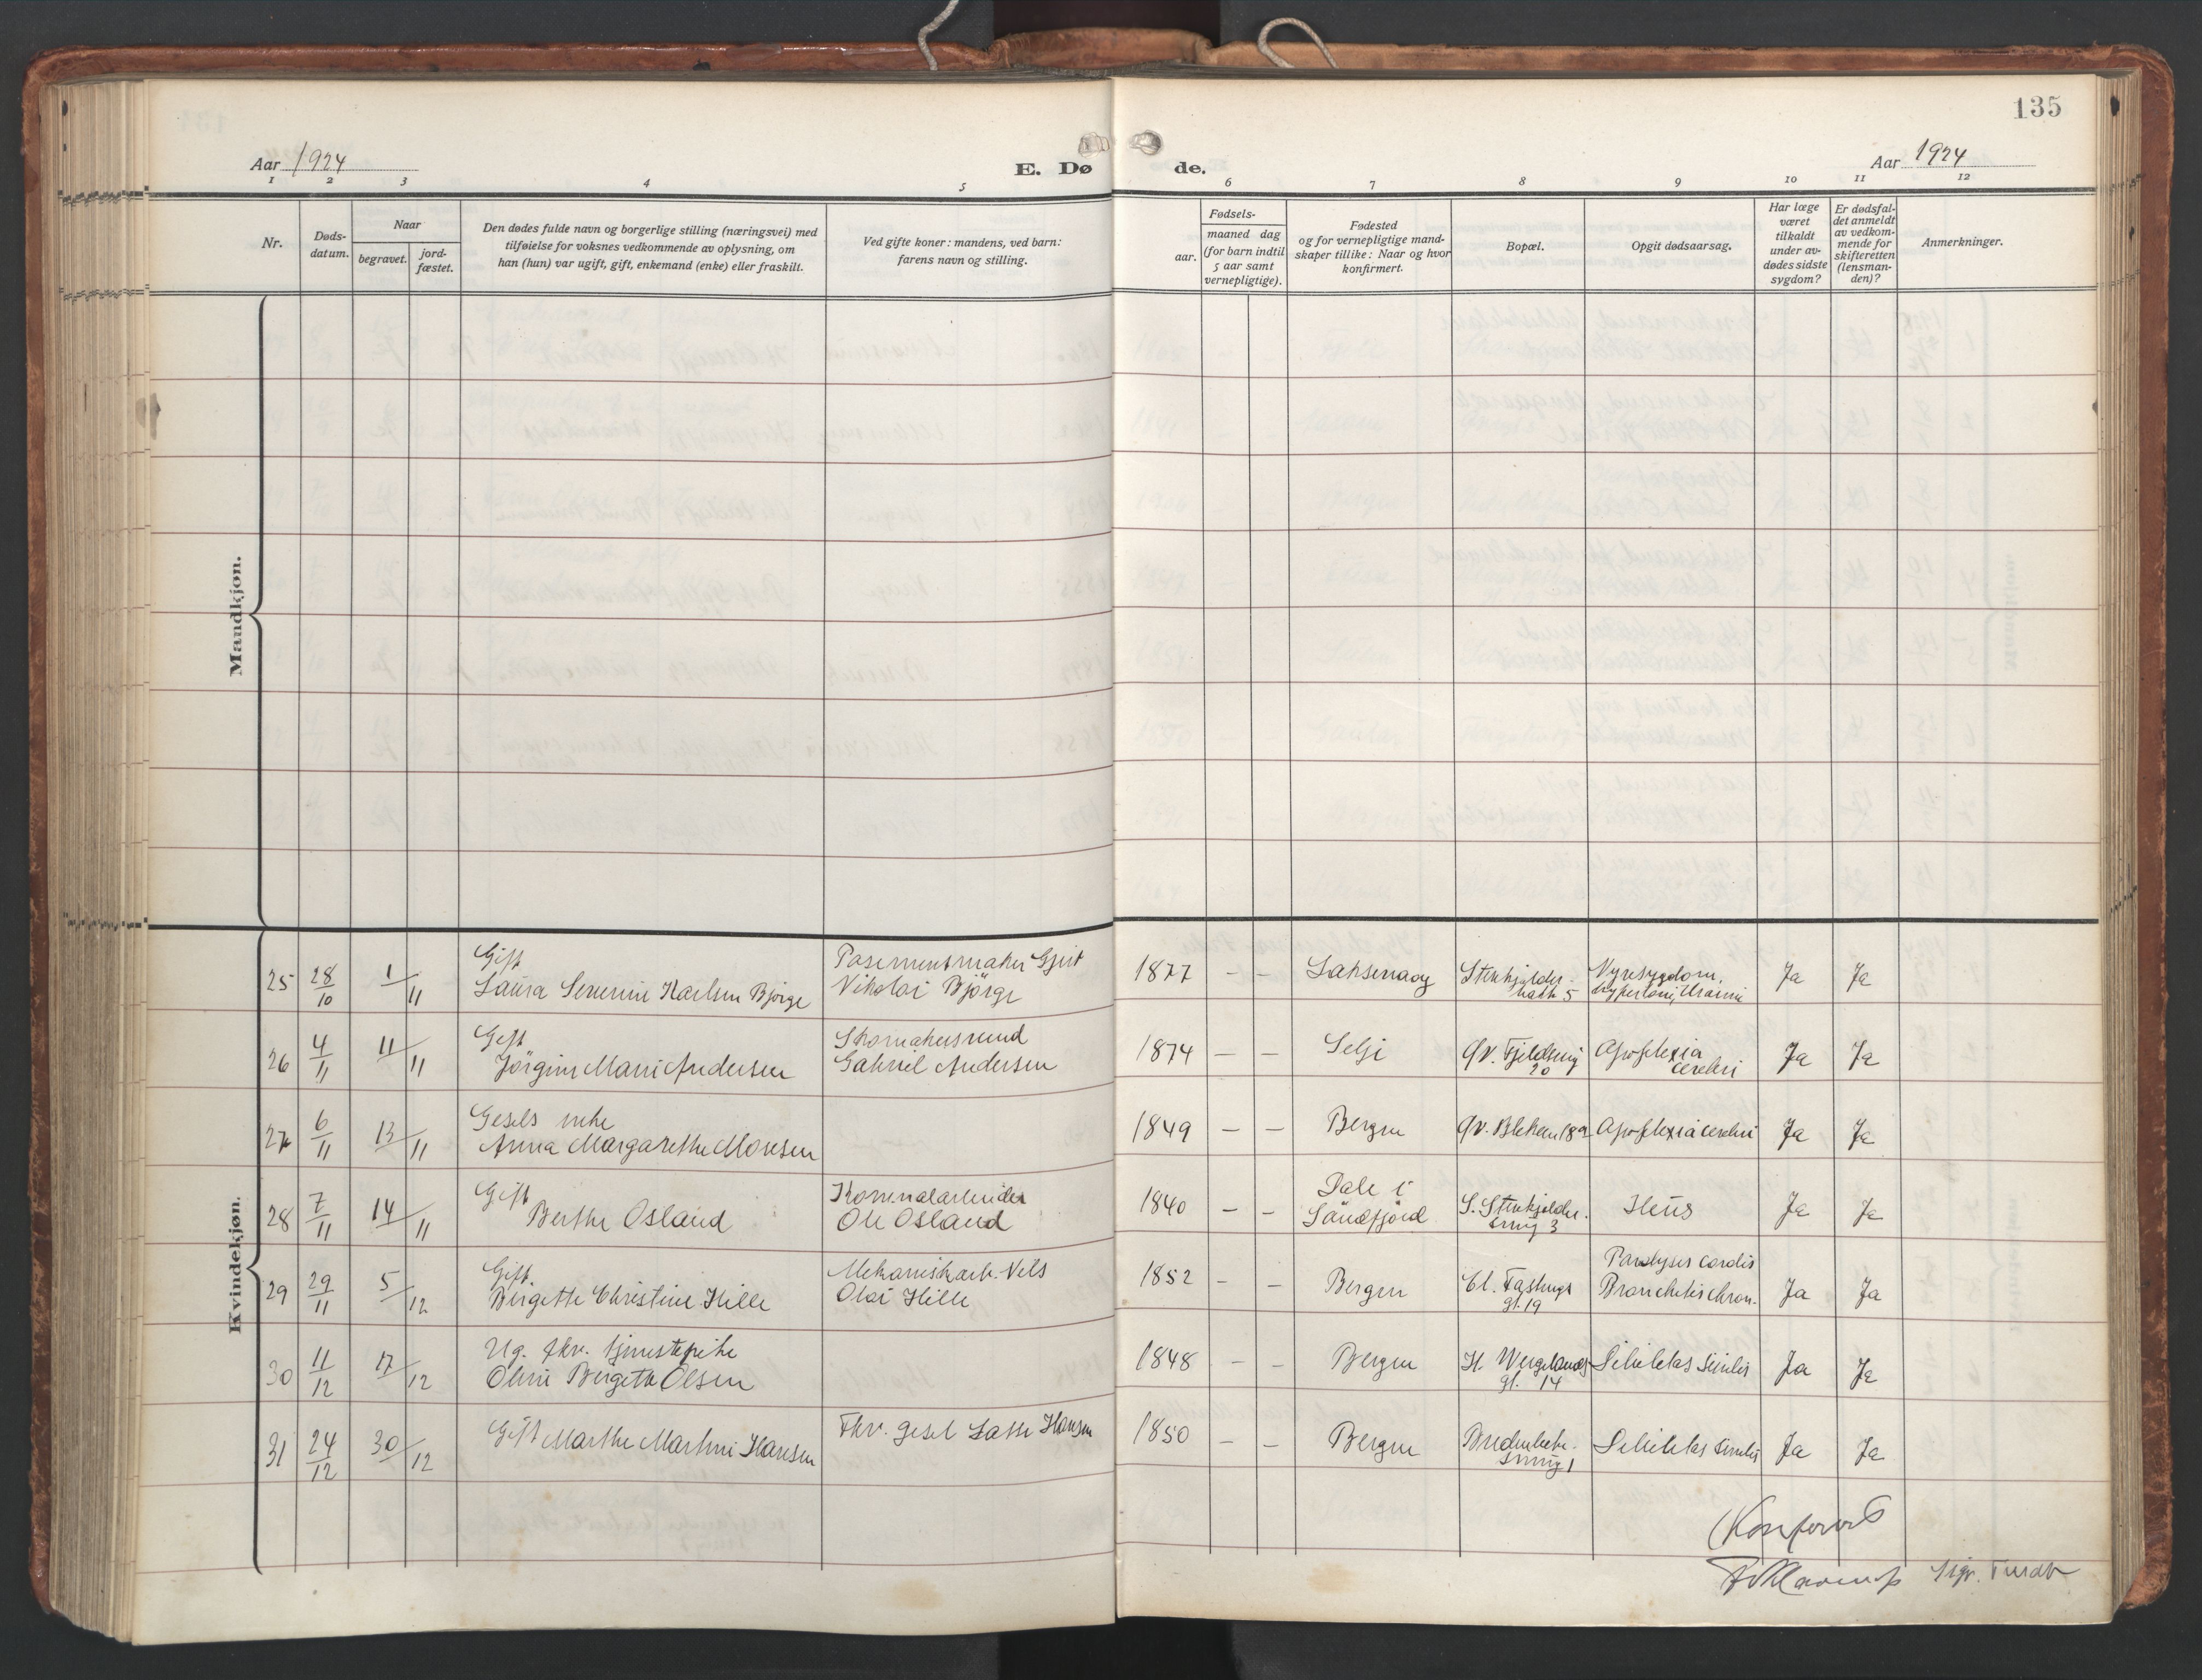 135
Aar 1924
E. Dø
de.
Aar 1924
1 2 3 4 5 6 7 8 9 10 11 12
Nr.
Døds-
datum.
Naar
begravet.
jord-
fæstet.
Den dødes fulde navn og borgerlige stilling (næringsvei) med
tilføielse for voksnes vedkommende av oplysning, om
han (hun) var ugift, gift, enkemand (enke) eller fraskilt.
Ved gifte koner: mandens, ved barn:
farens navn og stilling.
Fødsels-
aar.
maaned dag
(for barn indtil
5 aar samt
vernepligtige).
Fødested
og for vernepligtige mand-
skaper tillike: Naar og hvor
konfirmert.
Bopæl.
Opgit dødsaarsag.
Har læge
været
tilkaldt
under av-
dødes sidste
sygdom?
Er dødsfal-
det anmeldt
av vedkom-
mende for
skifteretten
(lensman-
den)?
Anmerkninger.
Mandkjøn.
Kvindekjøn.
25 28/10 1/11
Gift
Laura Severine Karlsen Bjørge
Pasementmaker Gjert
Nikolai Bjørge
1877 - - Laksevaag
Stenkjelder-
bakk 5
Nyresygdom,
hypertoni, Uræmi
Ja Ja
26 4/11 11/11
Gift
Jørgine Marie Andersen
Skomakersvend
Gabriel Andersen
1874 - - Selje
Øv. Fjeldsmug
20
Apoplexia
cerebri
Ja Ja
27 6/11 13/11
Gesels enke
Anna Margarethe Monsen
1849 - - Bergen
Øv. Blekev 18a
Apoplexia cerebri
Ja Ja
28 7/11 14/11
Gift
Berthe Osland
Komunalarbeider
Ole Osland
1840 - -
Dale i
Søndfjord
S. Stenkjelder-
smug 3
Ileus
Ja Ja
29 29/11 5/12
Gift
Birgitte Christine Hille
Mekaniskarb. Nils
Olai Hille
1852 - - Bergen
Cl. Fastings
gt. 19
Paralyses cordis
Bronchitis chron.
Ja Ja
30 11/12 17/12
Ug. fhv. tjenestepike
Oline Birgitte Olsen
1848 - - Bergen
H. Wergelands
gt. 14
Debilitas senilis
Ja Ja
31 24/12 30/12
Gift Marthe Martine Hansen
Fhv. gesel Lasse Hansen
1850 - - Bergen
smug 1
Debilitas senilis
Ja Ja
Konferert